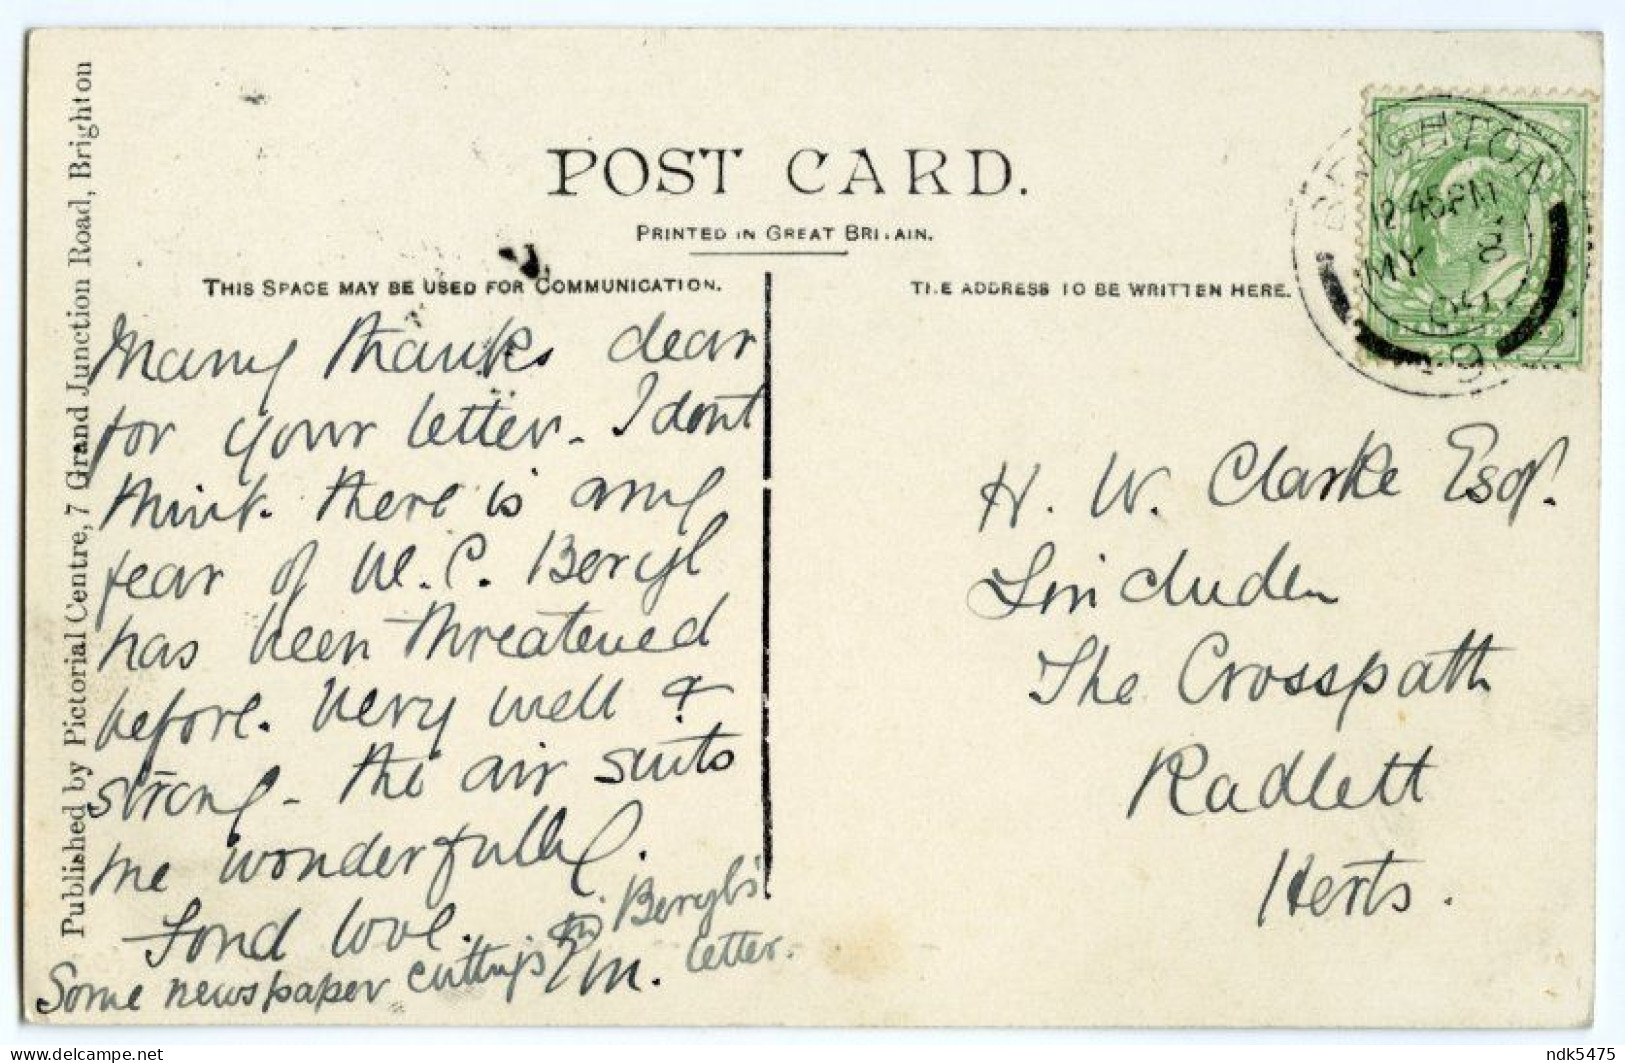 Published by Pictorial Centre, 7 Grand Junction Road, Brighton
POST CARD.
PRINTED IN GREAT BRITAIN.
THIS SPACE MAY BE USED FOR COMMUNICATION.
THE ADDRESS TO BE WRITTEN HERE.
BRIGHTON
12.45PM
MY 8
Many thanks dear
for your letter. I dont
think there is any
fear of W. C. Beryl
has been threatened
before. Very well &
strong - the air suits
me wonderfully.
Fond love.
M.
Some newspaper cuttings in Beryl's
letter.
H. W. Clarke Esqr.
Lincluden
The Crosspath
Radlett
Herts.
ndk5475